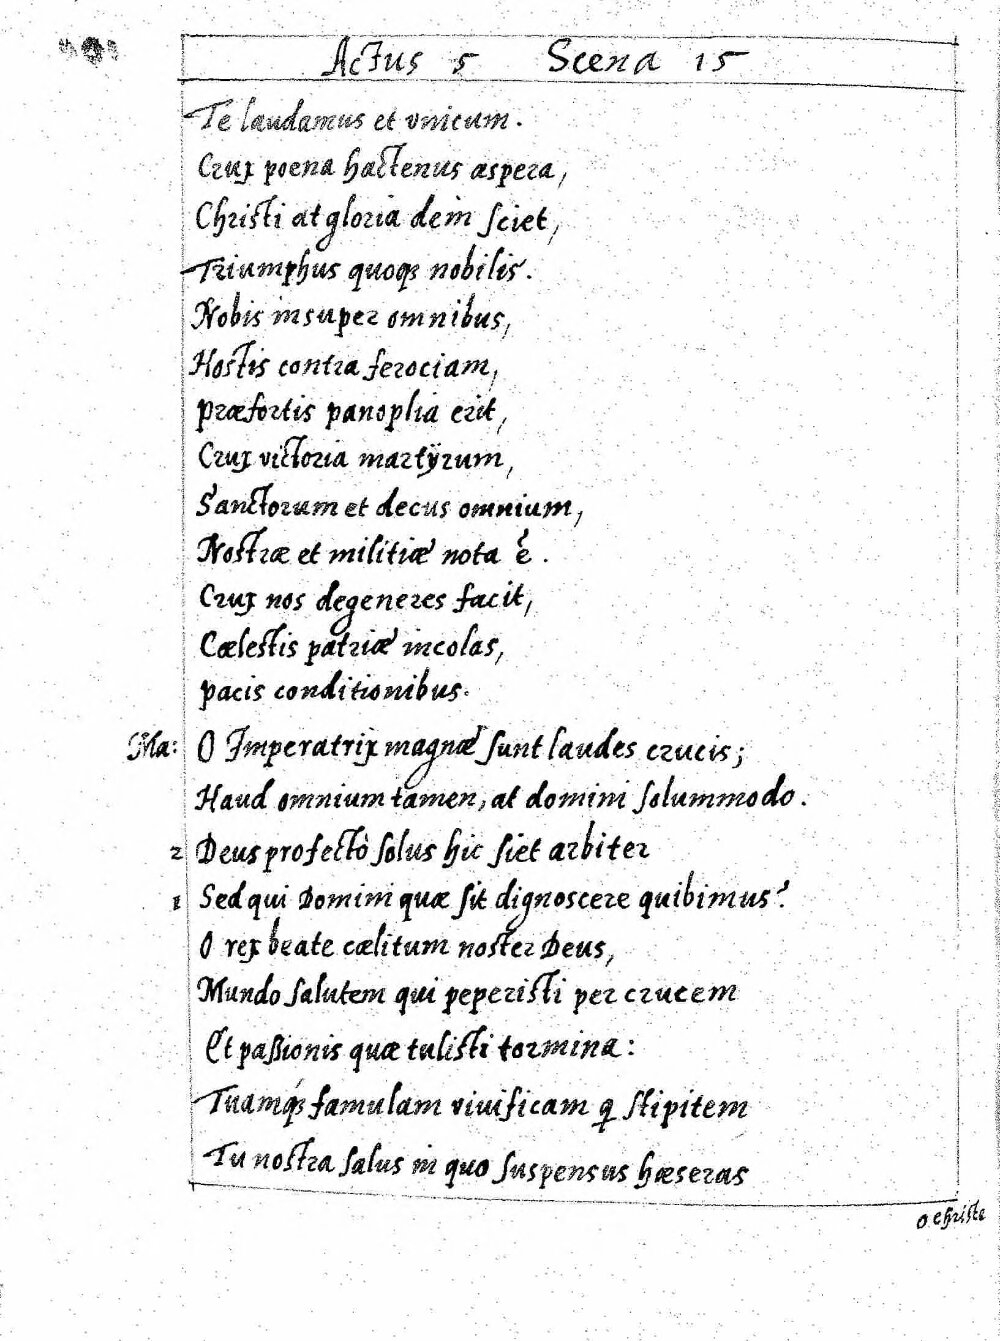 Actus 5 Scena 15
Te laudamus et vnicum.
Crux poena hactenus aspera,
Christi at gloria dein sciet,
Triumphus quoqꝫ nobilis.
Nobis insuper omnibus,
Hostis contra ferociam,
Præfortis panoplia erit,
Crux victoria martÿrum,
Sanctorum et decus omnium,
Nostræ et militiæ nota ē.
Crux nos degeneres facit,
Cœlestis patriæ incolas,
pacis conditionibus.
Ma: O Imperatrix magnæ sunt laudes crucis;
Haud omnium tamen, at domini solummodo.
2 Deus profectò solus hic siet arbiter
1 Sed qui Domini quæ sit dignoscere quibimus?
O rex beate cælitum noster Deus,
Mundo salutem qui peperisti per crucem
Et paßionis quæ tulisti tormina:
Tuamqꝫ famulam viuificam q stipitem
Tu nostra salus in quo suspensus hæseras
o christe